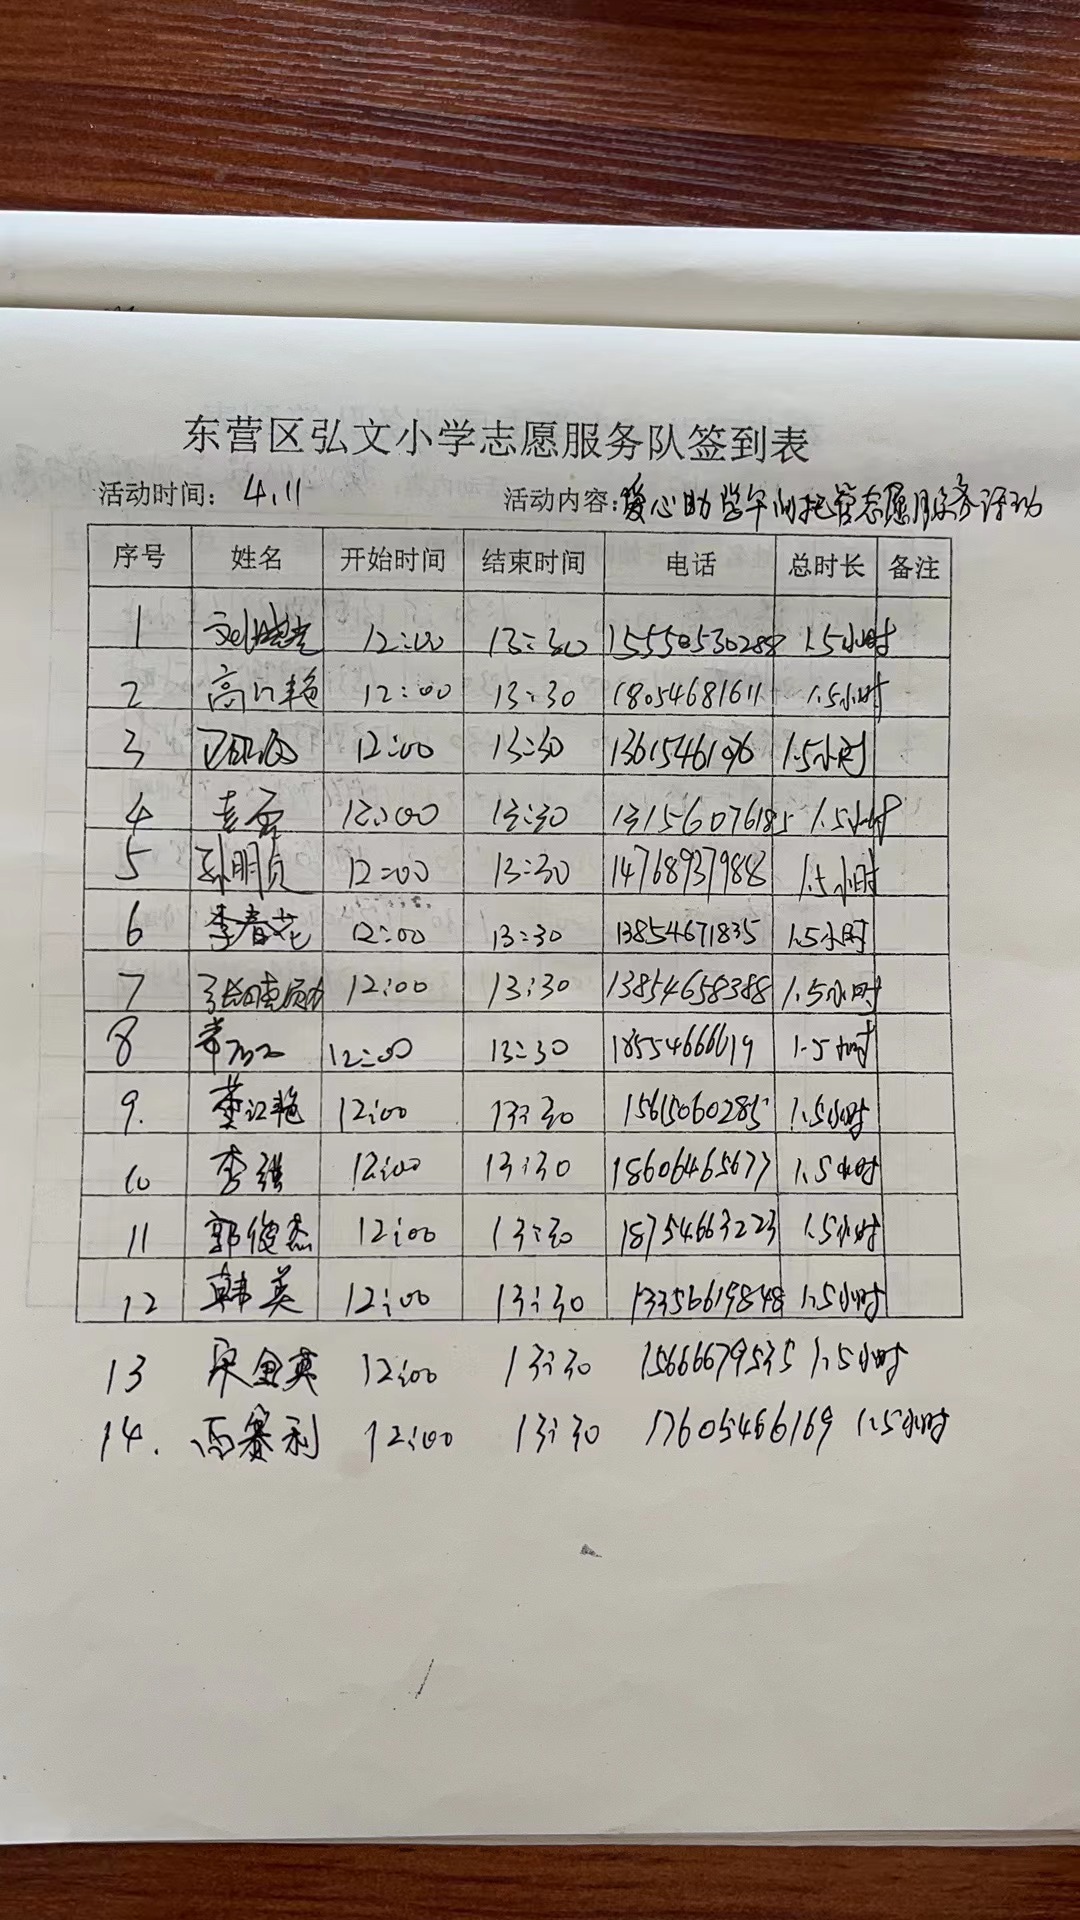 东营区弘文小学志愿服务队签到表
活动时间: 4.11 活动内容:爱心助学午间托管志愿服务活动
序号 姓名 开始时间 结束时间 电话 总时长 备注
1 12:00 13:30 15550530288 1.5小时
2 高江艳 12:00 13:30 18054681611 1.5小时
3 12:00 13:30 1.5小时
4 12:00 13:30 13156076185 1.5小时
5 孙明贞 12:00 13:30 14768937988 1.5小时
6 李春花 12:00 13:30 13854671835 1.5小时
7 12:00 13:30 13854658388 1.5小时
8 12:00 13:30 18554666619 1.5小时
9. 董江艳 12:00 13:30 15615060285 1.5小时
10 李强 12:00 13:30 18606465677 1.5小时
11 郭俊杰 12:00 13:30 18754663223 1.5小时
12 韩英 12:00 13:30 13356619848 1.5小时
13 宋金英 12:00 13:30 15666679535 1.5小时
14. 西赛利 12:00 13:30 17605466169 1.5小时